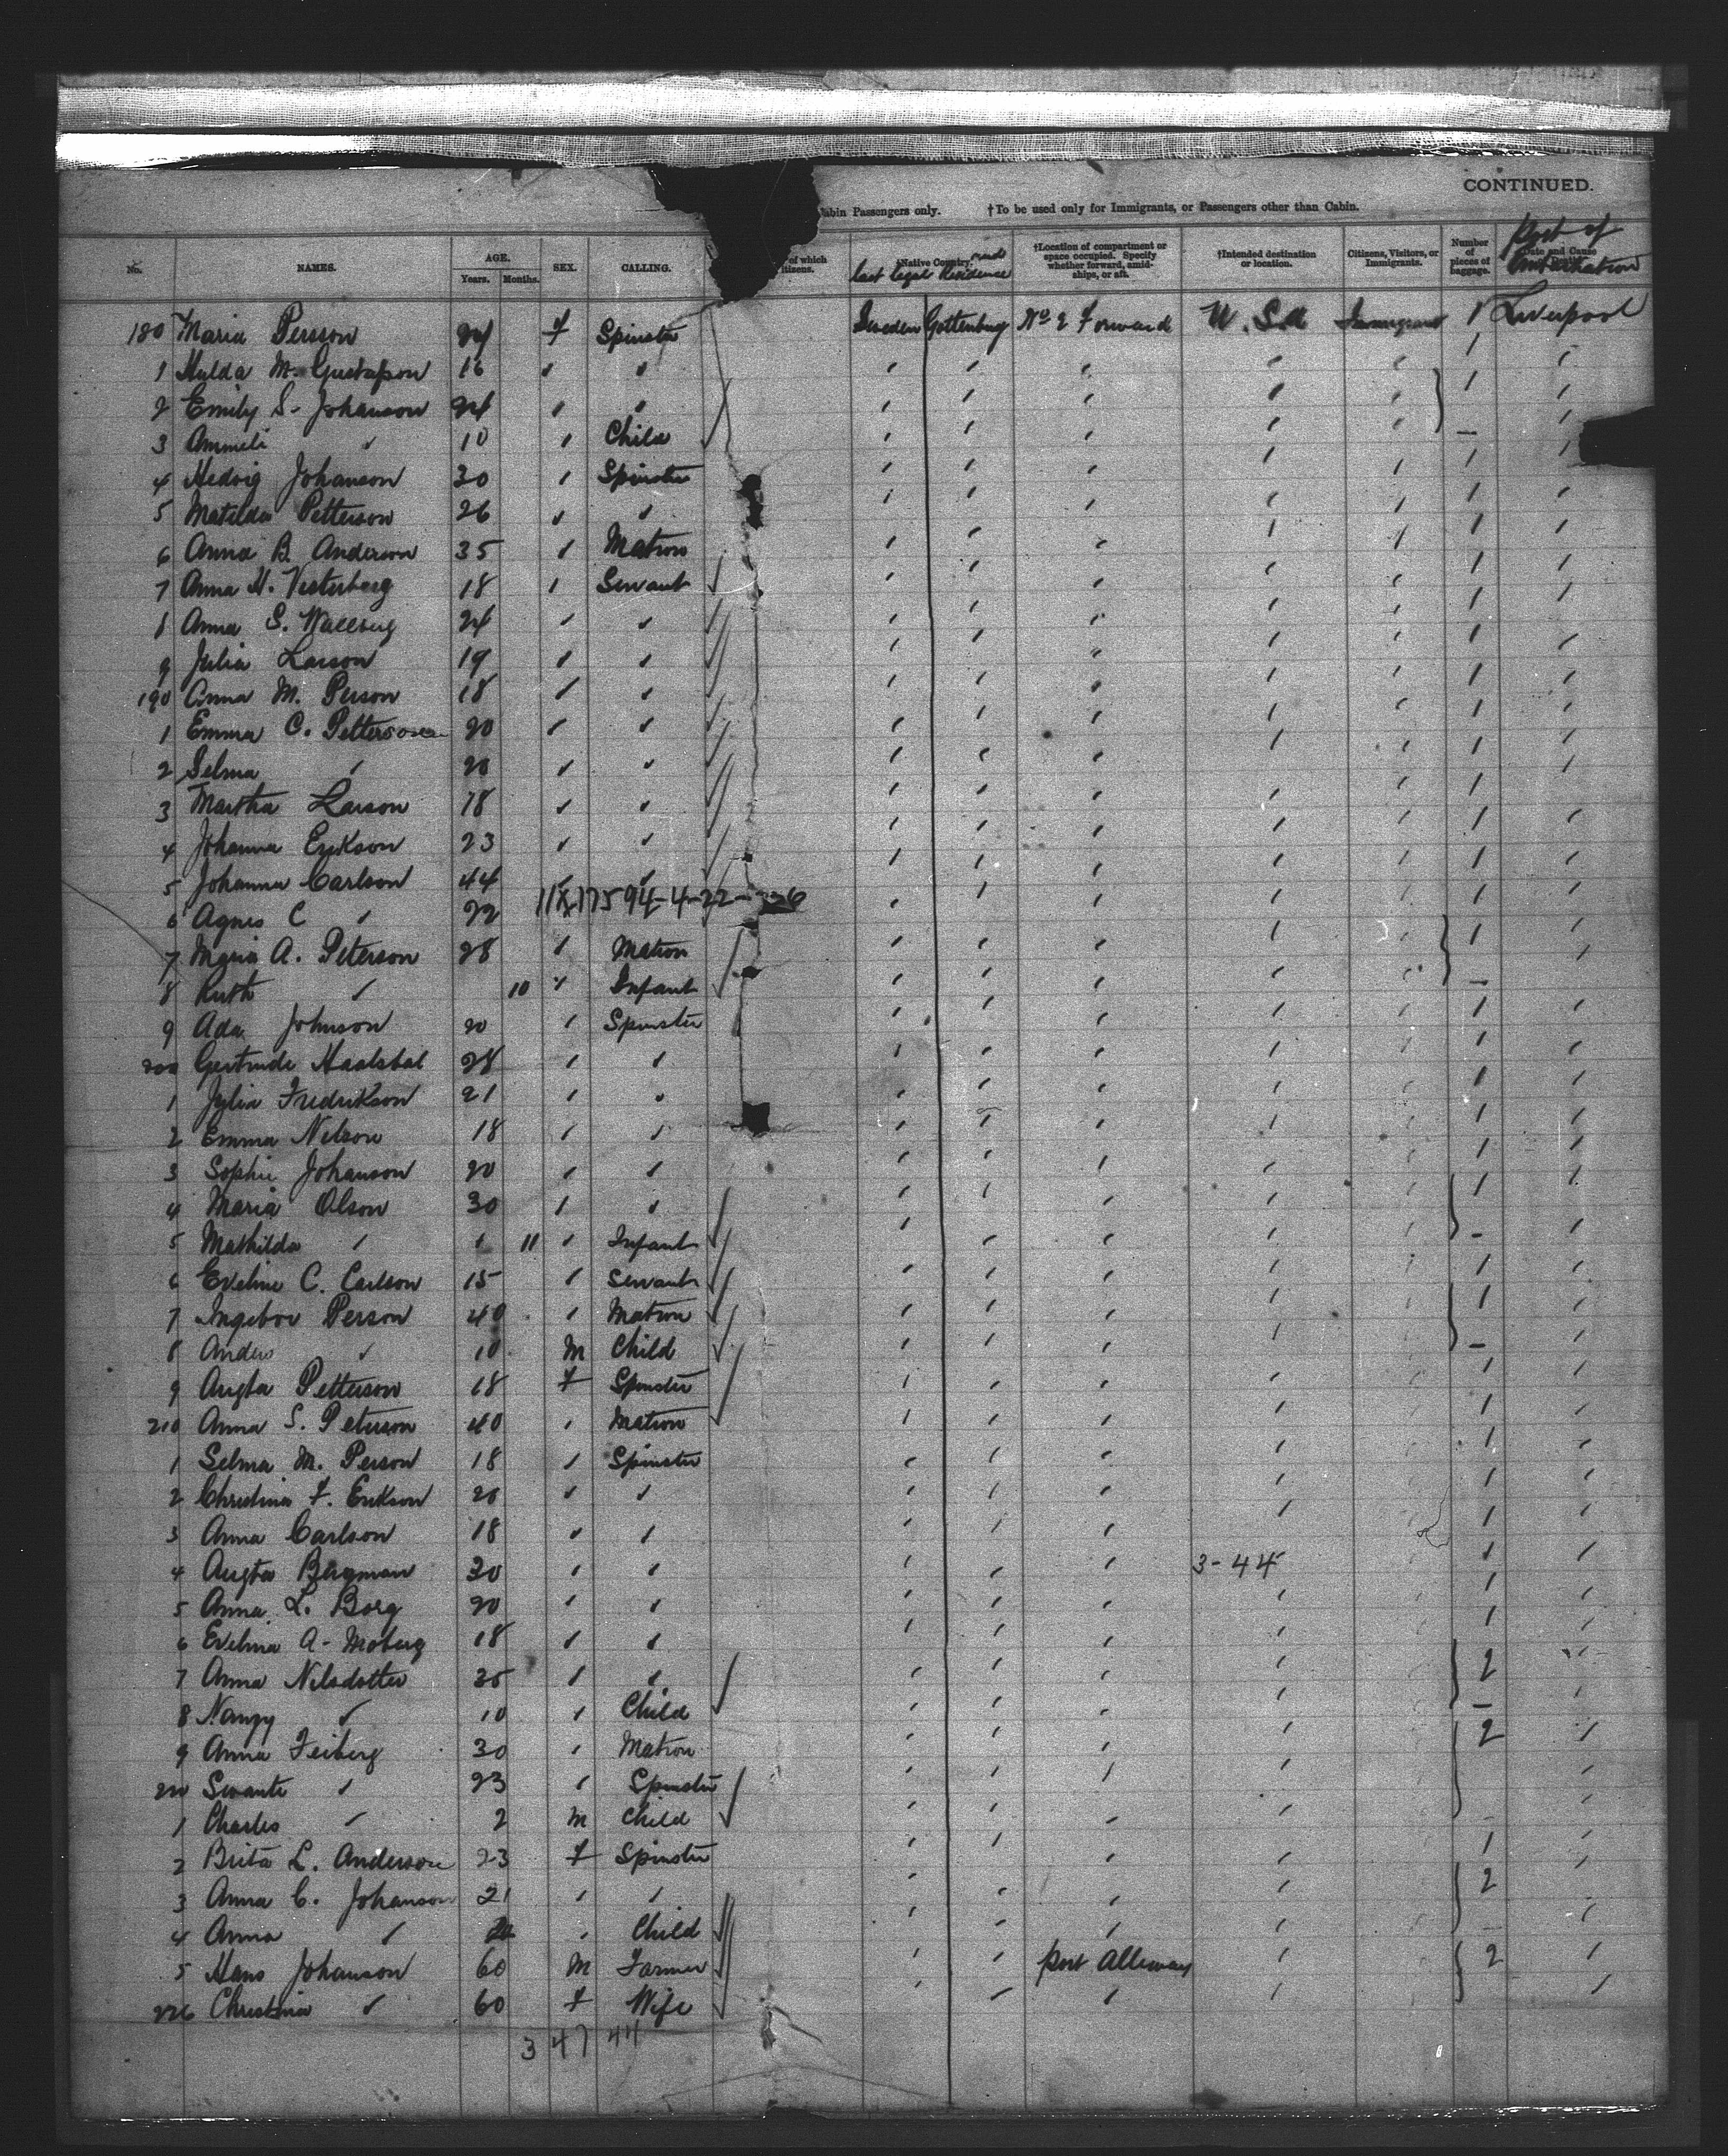 CONTINUED.
abin Passengers only. †To be used only for Immigrants, or Passengers other than Cabin.
No. NAMES. AGE. Years. Months. SEX. CALLING. of which citizens. †Native Country. and last legal Residence †Location of compartment or space occupied. Specify whether forward, amidships, or aft. †Intended destination or location. Citizens, Visitors, or Immigrants. Number of pieces of baggage. Date and Cause Port of Embarkation
180 Maria Persson 24 F Spinster Sweden Gottenburg No 2 Forward U.S.A Immigrant 1 Liverpool
1 Hulda M. Gustafson 16 " " " " " " " 1 "
2 Emily S. Johanson 24 " " " " " " " 1 "
3 Ammeli " 10 " Child " " " " " — "
4 Hedvig Johanson 30 " Spinster " " " " " 1 "
5 Matilda Petterson 26 " " " " " " " 1 "
6 Anna B. Anderson 35 " Matron " " " " " 1 "
7 Anna H. Vesterberg 18 " Servant " " " " " 1 "
8 Anna S. Wallberg 24 " " " " " " " 1 "
9 Julia Larson 19 " " " " " " " 1 "
190 Anna M. Person 18 " " " " " " " 1 "
1 Emma C. Petterson 20 " " " " " " " 1 "
2 Selma " 20 " " " " " " " 1 "
3 Martha Larson 18 " " " " " " " 1 "
4 Johanna Erikson 23 " " " " " " " 1 "
5 Johanna Carlson 44 " " " " " " " 1 "
6 Agnes C " 22 11X-17594-4-22- " " " " " 1 "
7 Maria A. Peterson 28 " Matron " " " " " 1 "
8 Ruth " 10 " Infant " " " " " — "
9 Ada Johnson 20 " Spinster " " " " " 1 "
200 Gertrude 28 " " " " " " " 1 "
1 Julia Fredrikson 21 " " " " " " " 1 "
2 Emma Nelson 18 " " " " " " " 1 "
3 Sophie Johanson 20 " " " " " " " 1 "
4 Maria Olson 30 " " " " " " " 1 "
5 Mathilda " " 11 " Infant " " " " " - "
6 Eveline C. Carlson 15 " Servant " " " " " 1 "
7 Ingebor Person 40 " Matron " " " " " 1 "
8 Anders " 10 M Child " " " " " — "
9 Augta Petterson 18 F Spinster " " " " " 1 "
210 Anna S. Peterson 40 " Matron " " " " " 1 "
1 Selma M. Person 18 " Spinster " " " " " 1 "
2 Christina F. Erikson 20 " " " " " " " 1 "
3 Anna Carlson 18 " " " " " " " 1 "
4 Augta Bergman 30 " " " " " 3-44 1 "
5 Anna L. Borg 20 " " " " " " " 1 "
6 Evelina A. Moberg 18 " " " " " " " 1 "
7 Anna Nilsdotter 35 " " " " " " " 2 "
8 Nanny " 10 " Child " " " " " — "
9 Anna Feiberg 30 " Matron " " " " " 2 "
220 Swante " 23 " Spinster " " " " "
1 Charles " 2 M Child " " " " " - "
2 Brita L. Anderson 23 F Spinster " " " " " 1 "
3 Anna C. Johanson 21 " " " " " " " 2 "
4 Anna " " Child " " " " " — "
5 Hans Johanson 60 M Farmer " " port Alleway " 2 "
226 Christina " 60 F Wife " " " " "
3 47 44